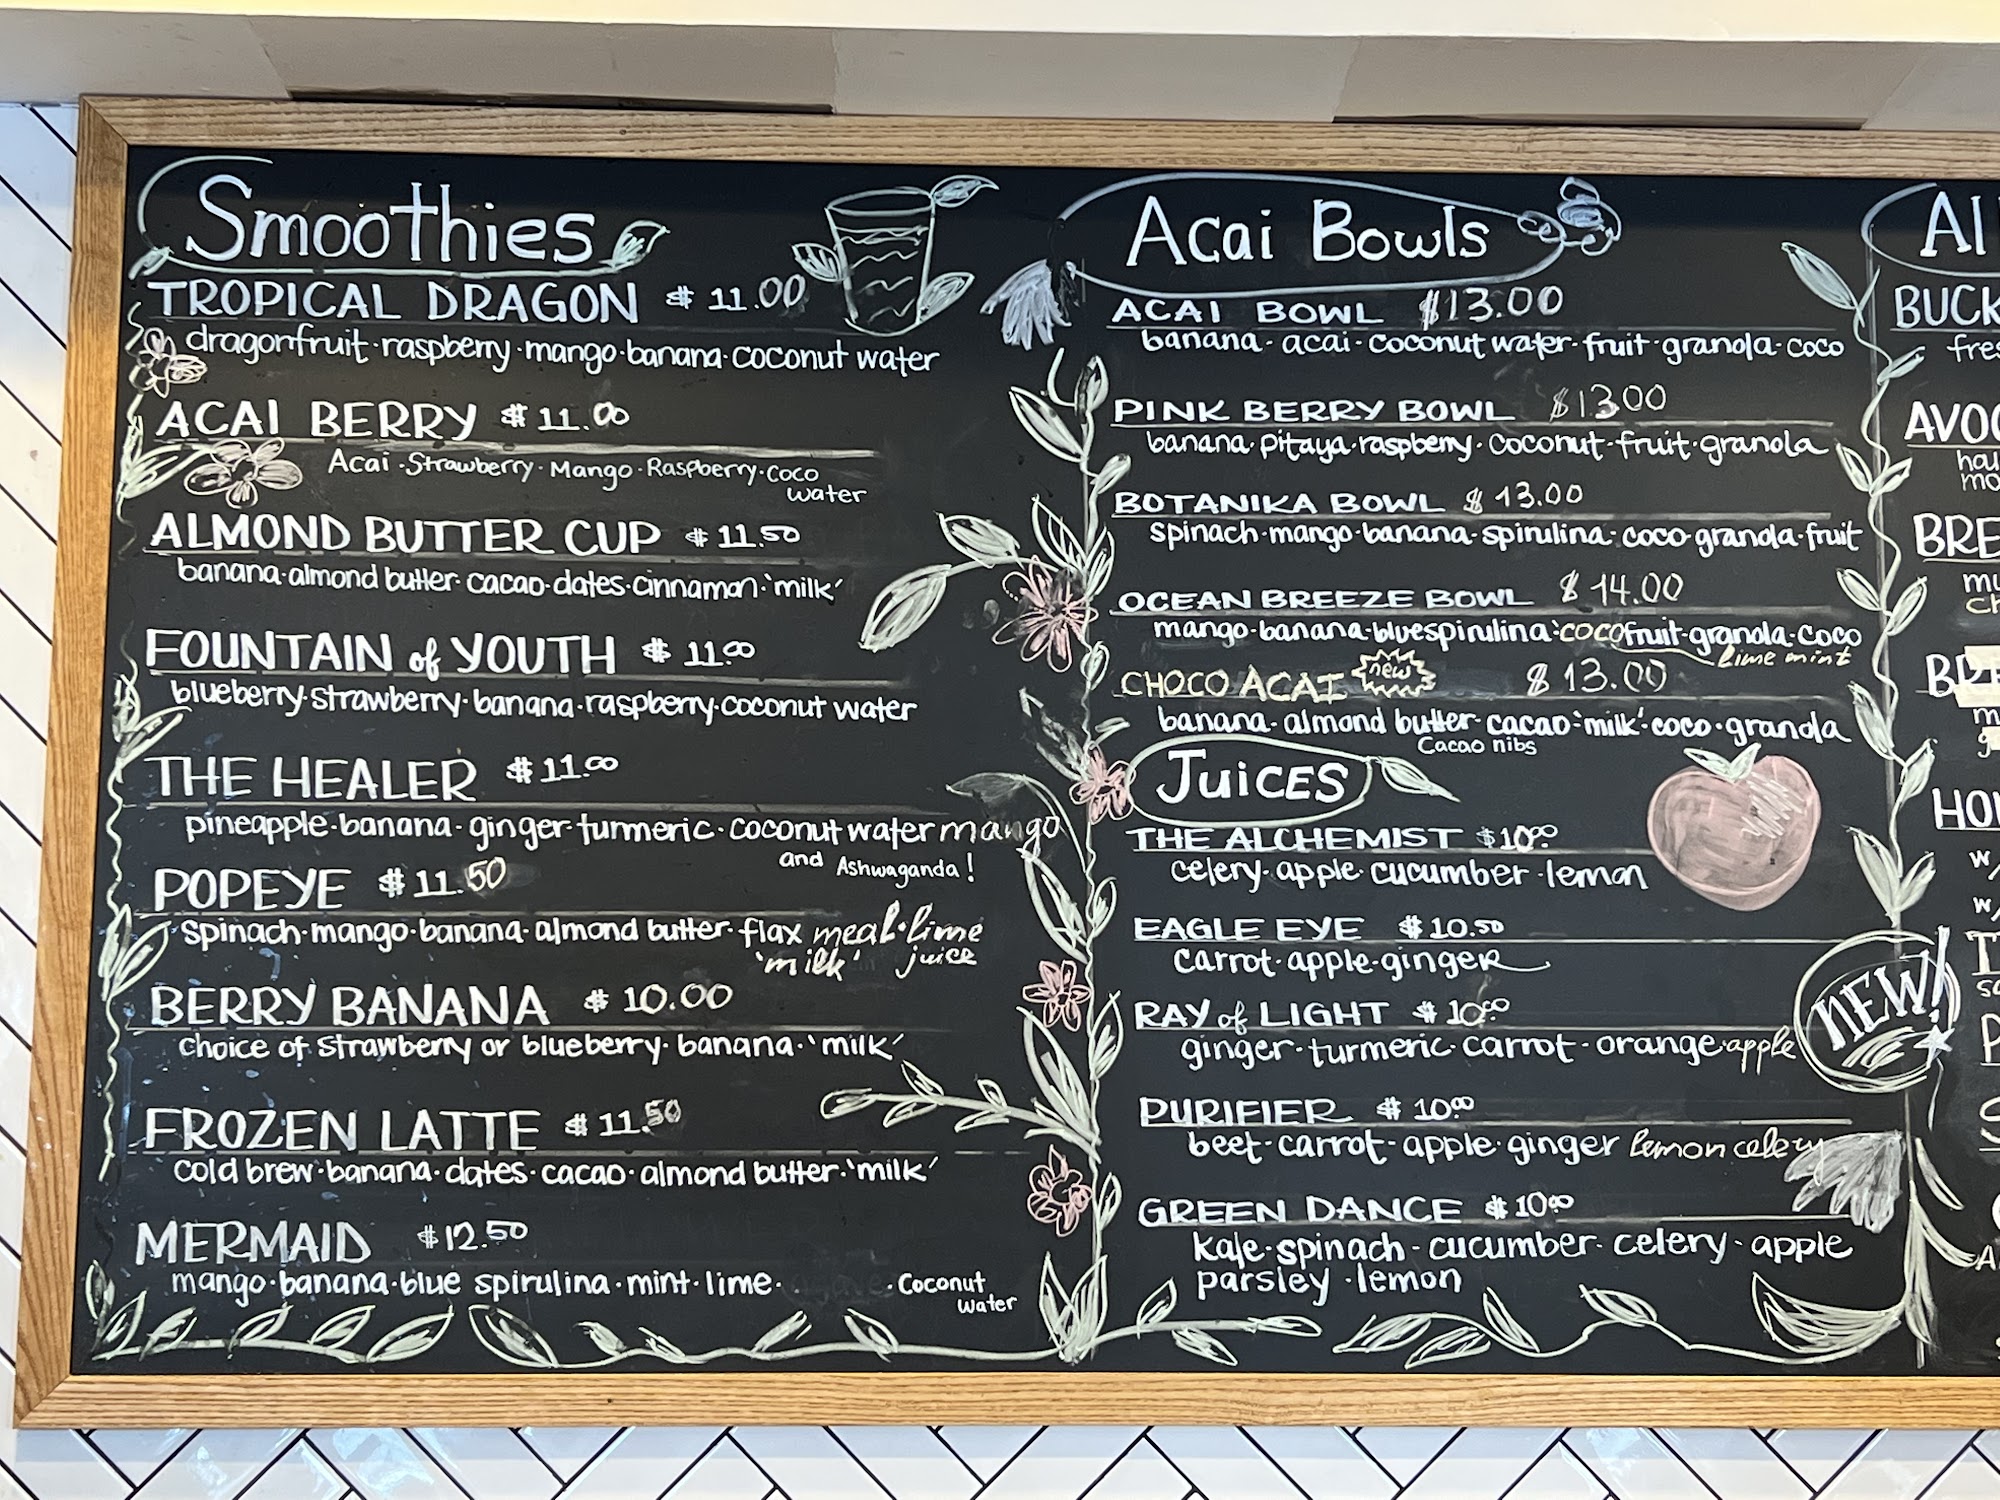 Smoothies
TROPICAL DRAGON $ 11.00
dragonfruit·raspberry·mango·banana·coconut water
ACAI BERRY $ 11.00
Acai·Strawberry·Mango·Raspberry·coco
water
ALMOND BUTTER CUP $ 11.50
banana·almond butter·cacao·dates·cinnamon·'milk'
FOUNTAIN of YOUTH $ 11.00
blueberry·strawberry·banana·raspberry·coconut water
THE HEALER $ 11.00
pineapple·banana·ginger·turmeric·coconut water mango
and Ashwaganda!
POPEYE $ 11.50
spinach·mango·banana·almond butter·flax meal·lime
'milk' juice
BERRY BANANA $ 10.00
choice of strawberry or blueberry·banana·'milk'
FROZEN LATTE $ 11.50
cold brew·banana·dates·cacao·almond butter·'milk'
MERMAID $12.50
mango·banana·blue spirulina·mint·lime· ·Coconut
water
Acai Bowls
ACAI BOWL $13.00
banana·acai·coconut water·fruit·granola·coco
PINK BERRY BOWL $13.00
banana·pitaya·raspberry·coconut·fruit·granola
BOTANIKA BOWL $ 13.00
spinach·mango·banana·spirulina·coco·granola·fruit
OCEAN BREEZE BOWL $ 14.00
mango·banana·bluespirulina·coco fruit·granola·coco
lime mint
CHOCO ACAI new $ 13.00
banana·almond butter·cacao·'milk'·coco·granola
Cacao nibs
Juices
THE ALCHEMIST $10.00
celery·apple·cucumber·lemon
EAGLE EYE $ 10.50
carrot·apple·ginger
RAY of LIGHT $ 10.00
ginger·turmeric·carrot·orange·apple
PURIFIER $ 10.00
beet·carrot·apple·ginger lemon celery
GREEN DANCE $ 10.00
kale·spinach·cucumber·celery·apple
parsley·lemon
NEW!
Al
BUCK
fres
AVOC
BRE
HO
w/
w/